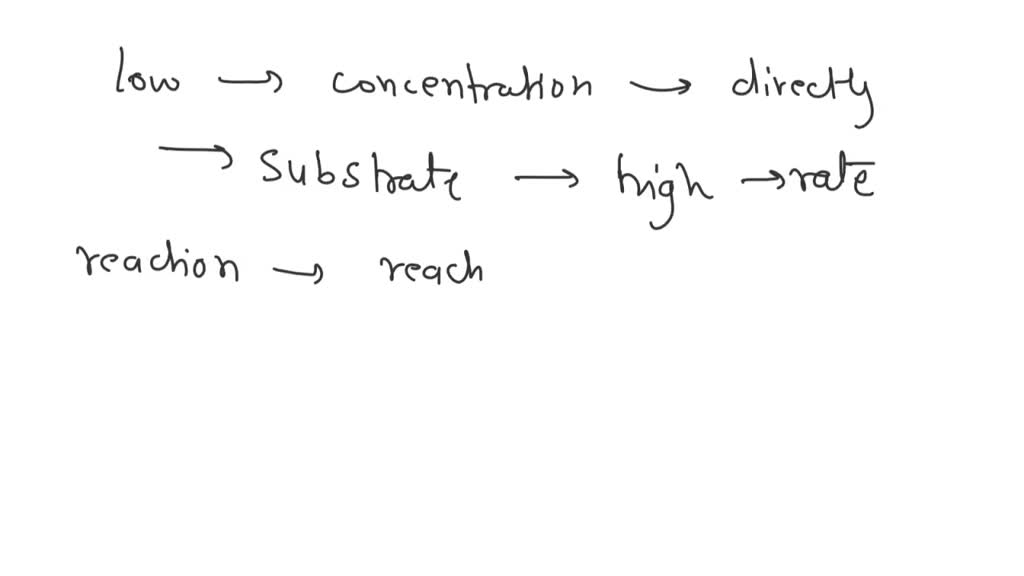 low → concentration → directly
→ substrate → high → rate
reaction → reach